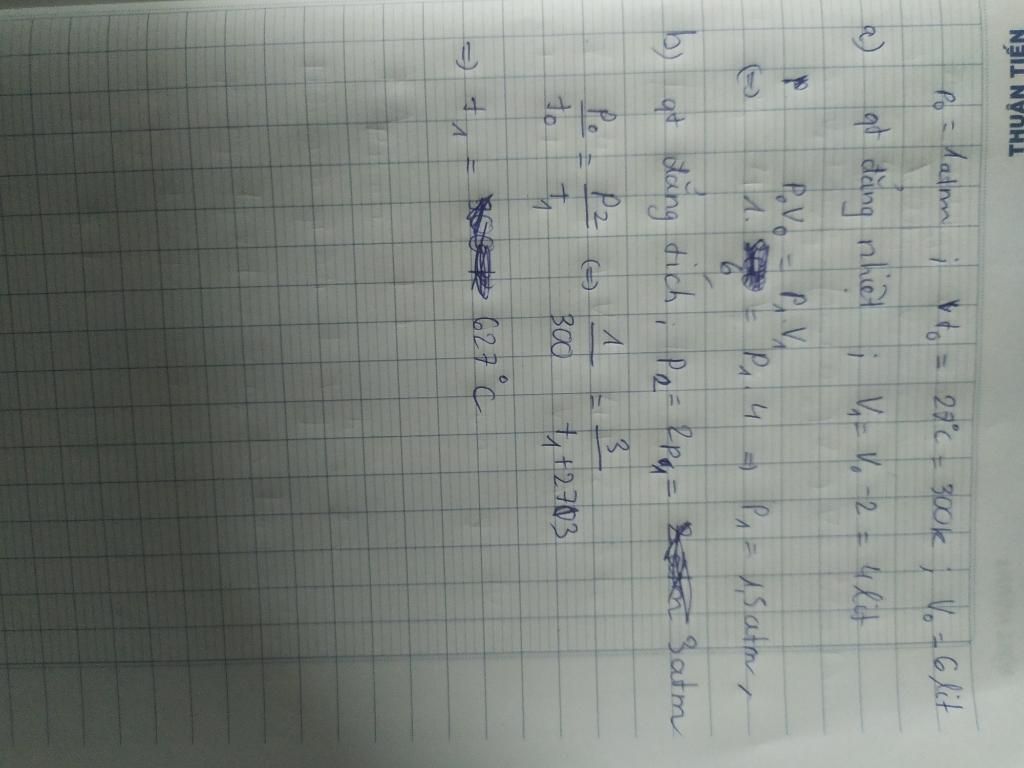 THUẬN TIẾN
P₀ = 1atm ; t₀ = 27°C = 300K ; V₀ = 6 lit
a) qt đẳng nhiệt ; V₁ = V₀ - 2 = 4 lit
P₀V₀ = P₁V₁
(=) 1. 6 = P₁. 4 => P₁ = 1,5 atm,
b) qt đẳng tích ; P₂ = 2p₁ = 3 atm
P₀/t₀ = P₂/t₁ (=) 1/300 = 3/t₁+273
=> t₁ = 627°C